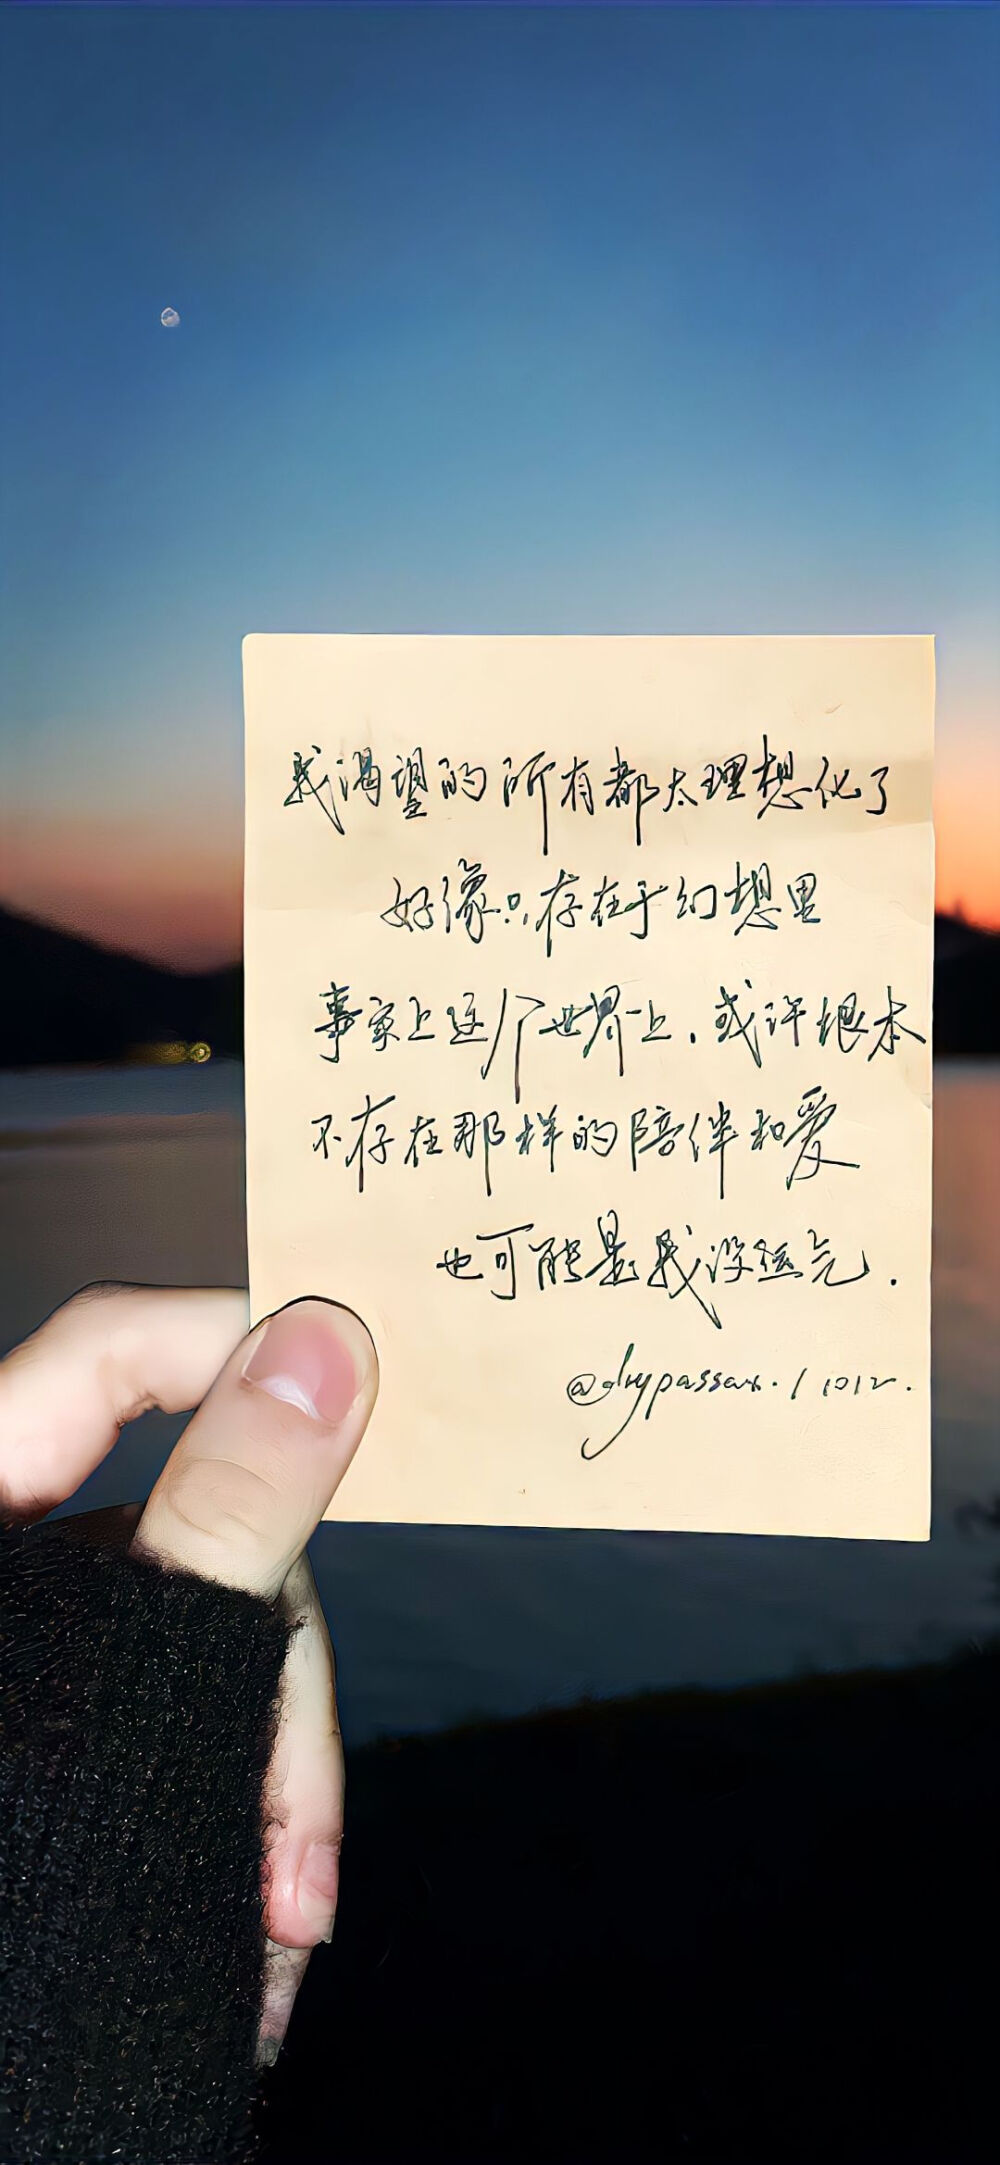 我渴望的所有都太理想化了
好像只存在于幻想里
事实上这个世界上.或许根本
不存在那样的陪伴和爱
也可能是我没运气.
/ 1012.